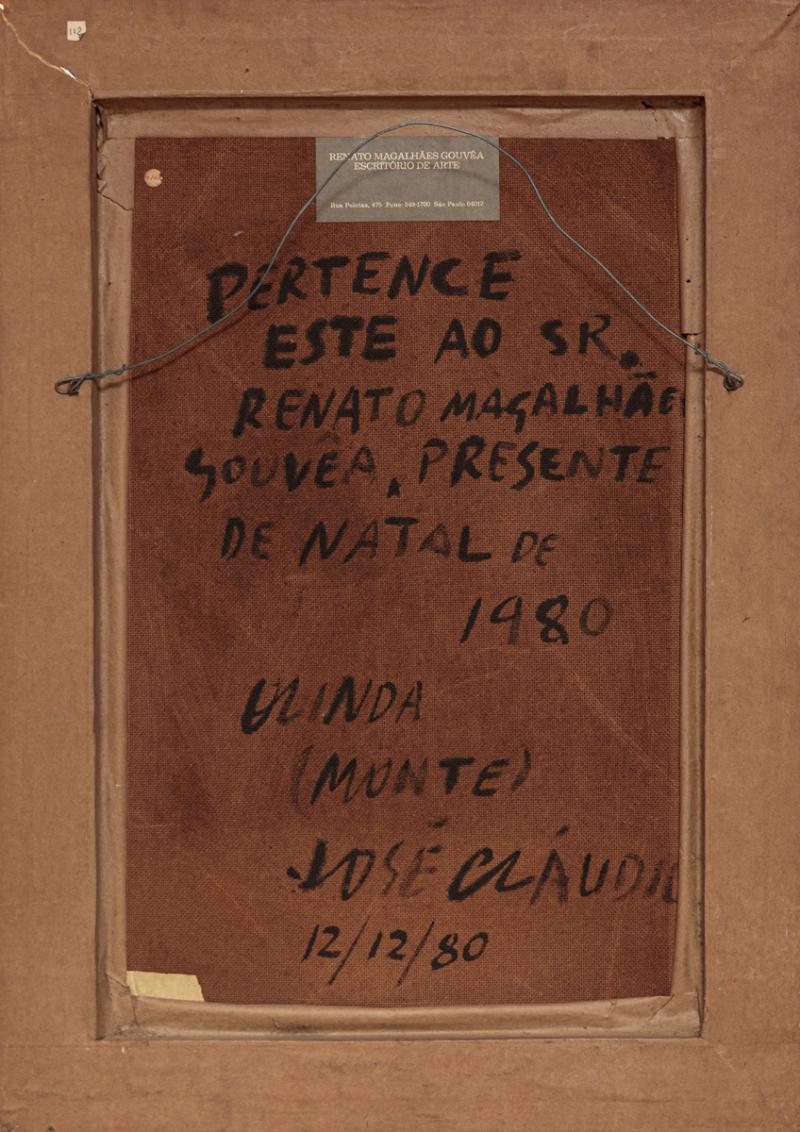 112
RENATO MAGALHÃES GOUVÊA
ESCRITÓRIO DE ARTE
Rua Pelotas, 475 Fone: 549-1700 São Paulo 04012
PERTENCE
ESTE AO SR.
RENATO MAGALHÃES
GOUVÊA, PRESENTE
DE NATAL DE
1980
OLINDA
(MONTE)
JOSÉ CLÁUDIO
12/12/80